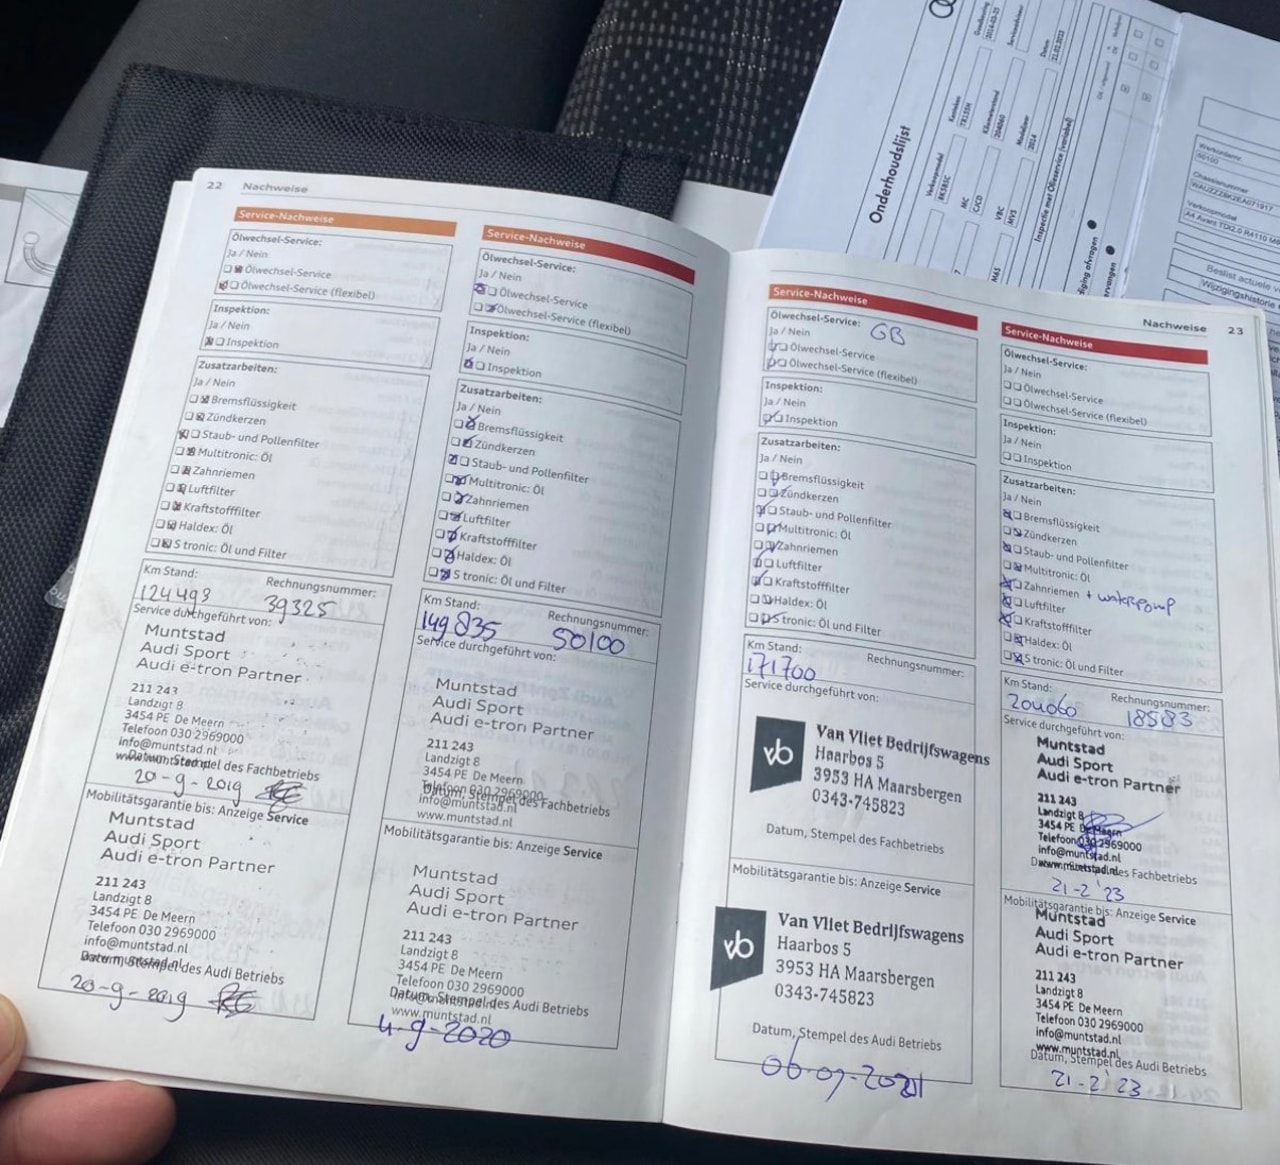 22 Nachweise
Service-Nachweise
Ölwechsel-Service:
Ja / Nein
Ölwechsel-Service
Ölwechsel-Service (flexibel)
Inspektion:
Ja / Nein
Inspektion
Zusatzarbeiten:
Ja / Nein
Bremsflüssigkeit
Zündkerzen
Staub- und Pollenfilter
Multitronic: Öl
Zahnriemen
Luftfilter
Kraftstofffilter
Haldex: Öl
S tronic: Öl und Filter
Km Stand: Rechnungsnummer:
124493 39325
Service durchgeführt von:
Muntstad
Audi Sport
Audi e-tron Partner
211 243
Landzigt 8
3454 PE De Meern
Telefoon 030 2969000
info@muntstad.nl
www.muntstad.nl
Datum, Stempel des Fachbetriebs
20-9-2019
Mobilitätsgarantie bis: Anzeige Service
Muntstad
Audi Sport
Audi e-tron Partner
211 243
Landzigt 8
3454 PE De Meern
Telefoon 030 2969000
info@muntstad.nl
www.muntstad.nl
Datum, Stempel des Audi Betriebs
20-9-2019
Service-Nachweise
Ölwechsel-Service:
Ja / Nein
Ölwechsel-Service
Ölwechsel-Service (flexibel)
Inspektion:
Ja / Nein
Inspektion
Zusatzarbeiten:
Ja / Nein
Bremsflüssigkeit
Zündkerzen
Staub- und Pollenfilter
Multitronic: Öl
Zahnriemen
Luftfilter
Kraftstofffilter
Haldex: Öl
S tronic: Öl und Filter
Km Stand: Rechnungsnummer:
149835 50100
Service durchgeführt von:
Muntstad
Audi Sport
Audi e-tron Partner
211 243
Landzigt 8
3454 PE De Meern
Telefoon 030 2969000
Datum, Stempel des Fachbetriebs
info@muntstad.nl
www.muntstad.nl
Mobilitätsgarantie bis: Anzeige Service
Muntstad
Audi Sport
Audi e-tron Partner
211 243
Landzigt 8
3454 PE De Meern
Telefoon 030 2969000
Datum, Stempel des Audi Betriebs
info@muntstad.nl
www.muntstad.nl
4-9-2020
Nachweise 23
Service-Nachweise
Ölwechsel-Service: GB
Ja / Nein
Ölwechsel-Service
Ölwechsel-Service (flexibel)
Inspektion:
Ja / Nein
Inspektion
Zusatzarbeiten:
Ja / Nein
Bremsflüssigkeit
Zündkerzen
Staub- und Pollenfilter
Multitronic: Öl
Zahnriemen
Luftfilter
Kraftstofffilter
Haldex: Öl
S tronic: Öl und Filter
Km Stand: Rechnungsnummer:
171700
Service durchgeführt von:
vb
Van Vliet Bedrijfswagens
Haarbos 5
3953 HA Maarsbergen
0343-745823
Datum, Stempel des Fachbetriebs
Mobilitätsgarantie bis: Anzeige Service
vb
Van Vliet Bedrijfswagens
Haarbos 5
3953 HA Maarsbergen
0343-745823
Datum, Stempel des Audi Betriebs
Service-Nachweise
Ölwechsel-Service:
Ja / Nein
Ölwechsel-Service
Ölwechsel-Service (flexibel)
Inspektion:
Ja / Nein
Inspektion
Zusatzarbeiten:
Ja / Nein
Bremsflüssigkeit
Zündkerzen
Staub- und Pollenfilter
Multitronic: Öl
Zahnriemen + waterpomp
Luftfilter
Kraftstofffilter
Haldex: Öl
S tronic: Öl und Filter
Km Stand: Rechnungsnummer:
204060 18583
Service durchgeführt von:
Muntstad
Audi Sport
Audi e-tron Partner
211 243
Landzigt 8
3454 PE De Meern
Telefoon 030 2969000
info@muntstad.nl
www.muntstad.nl
Datum, Stempel des Fachbetriebs
21-2'23
Mobilitätsgarantie bis: Anzeige Service
Muntstad
Audi Sport
Audi e-tron Partner
211 243
Landzigt 8
3454 PE De Meern
Telefoon 030 2969000
info@muntstad.nl
www.muntstad.nl
Datum, Stempel des Audi Betriebs
21-2'23
Onderhoudslijst
Verkoopmodel
8K5BSC
Kenteken
Kilometerstand
204060
Modeljaar
2014
Datum
21.02.2023
Inspectie met Olieservice (variabel)
Werkordernr.
Chassisnummer
Verkoopmodel
Wijzigingshistorie